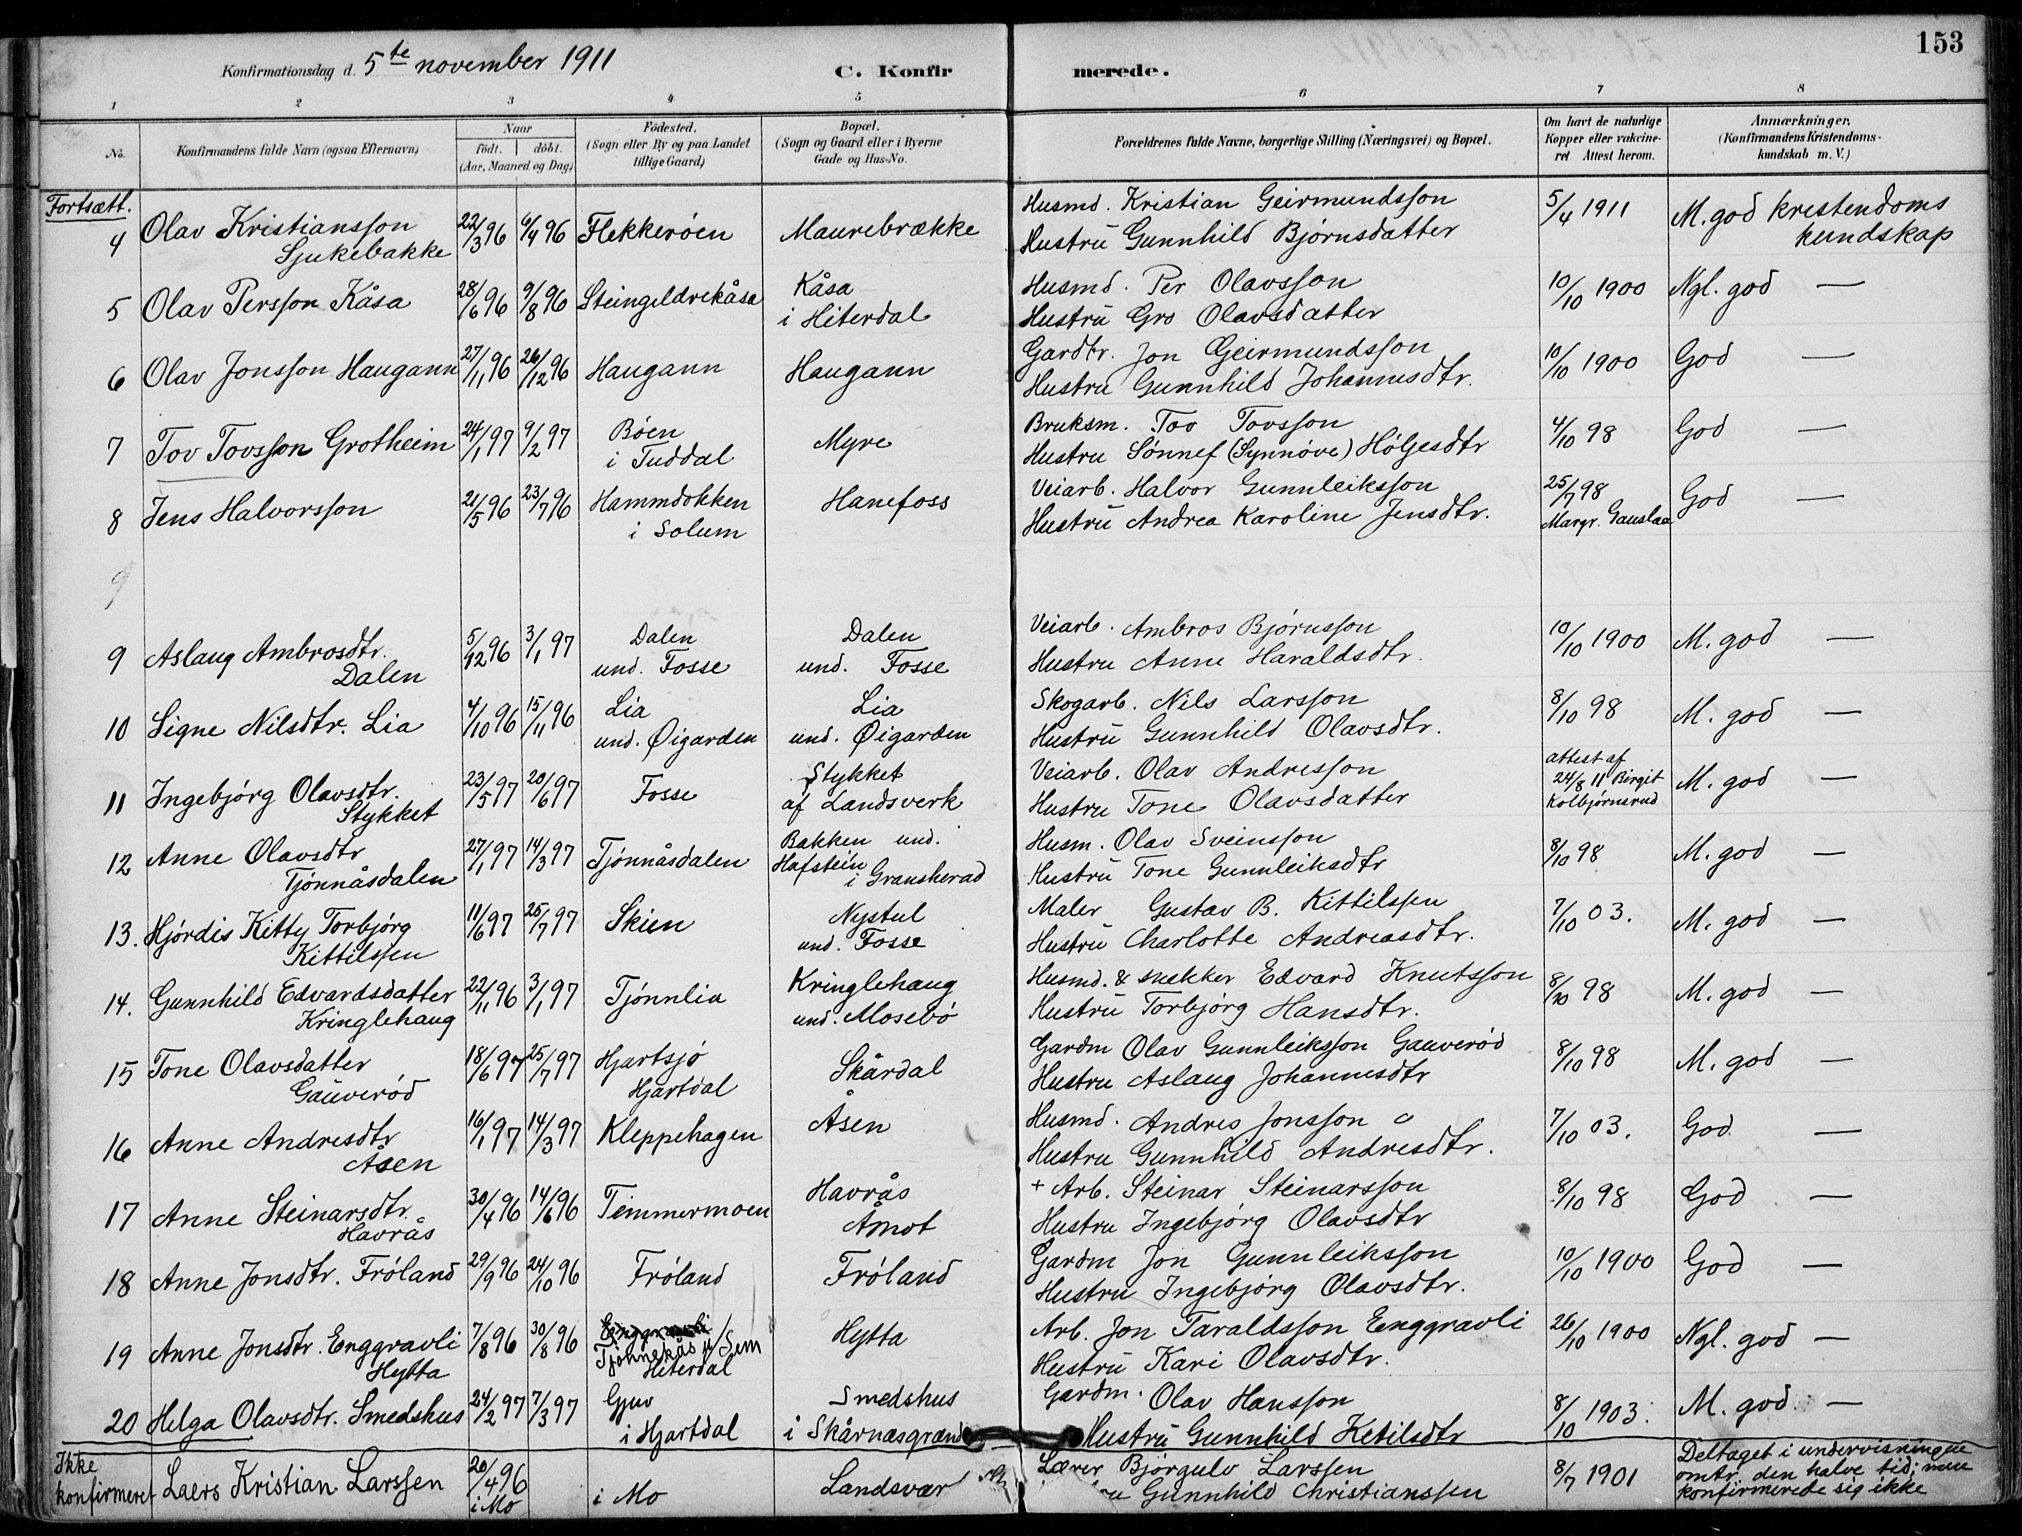 153
Konfirmationsdag d. 5te november 1911
C. Konfirmerede.
1 2 3 4 5 6 7 8
No.
Konfirmandens fulde Navn (ogsaa Efternavn)
Naar
født. døbt.
(Aar, Maaned og Dag)
Fødested.
(Sogn eller By og paa Landet
tillige Gaard)
Bopæl.
(Sogn og Gaard eller i Byerne
Gade og Hus-No.
Forældrenes fulde Navne, borgerlige Stilling (Næringsvei) og Bopæl.
Om havt de naturlige
Kopper eller vakcineret
Attest herom.
Anmærkninger.
(Konfirmandens Kristendoms-
kundskab m. V.)
Fortsætt.
4 Olav Kristiansson Sjukebakke 22/3 96 6/4 96 Flekkerøen Maurebrække
Husmd. Kristian Geirmundsson
Hustru Gunnhild Bjørnsdatter
5/4 1911 M. god krestendoms kundskap
5 Olav Persson Kåsa 28/6 96 9/8 96 Steingeldrekåsa Kåsa i Hiterdal
Husmd. Per Olavsson
Hustru Gro Olavsdatter
10/10 1900 Ngl. god —
6 Olav Jonsson Haugann 27/11 96 26/12 96 Haugann Haugann
Gardbr. Jon Geirmundsson
Hustru Gunnhild Johannesdtr.
10/10 1900 God —
7 Tov Tovsson Grotheim 24/1 97 9/2 97 Bøen i Tuddal Myre
Bruksm. Tov Tovsson
Hustru Sønnef (Synnøve) Hølgesdtr
4/10 98 God —
8 Jens Halvorsson 21/5 96 23/7 96 Hammdokken i Solum Hanefoss
Veiarb. Halvor Gunnleiksson
Hustru Andrea Karoline Jensdtr.
25/7 98 Margr. Gauslaa God —
9
9 Aslaug Ambrosdtr. Dalen 5/12 96 3/1 97 Dalen und. Fosse Dalen und. Fosse
Veiarb. Ambros Bjørnsson
Hustru Anne Haraldsdtr.
10/10 1900 M. god —
10 Signe Nilsdtr. Lia 4/10 96 15/11 96 Lia und. Øigarden Lia und. Øigarden
Skogarb. Nils Larsson
Hustru Gunnhild Olavsdtr.
8/10 98 M. god —
11 Ingebjørg Olavsdtr. Stykket 23/5 97 20/6 97 Fosse Stykket af Landsverk
Veiarb. Olav Andresson
Hustru Tone Olavsdatter
attest af 24/8 11 Birgit Kolbjørnsrud M. god —
12 Anne Olavsdtr Tjønnåsdalen 27/1 97 14/3 97 Tjønnåsdalen Bakken und. Hafstein i Gransherad
Husm. Olav Sveinsson
Hustru Tone Gunnleiksdtr
8/10 98 M. god —
13. Hjørdis Kitty Torbjørg Kittilssen 11/6 97 25/7 97 Skien Nystul und. Fosse
Maler Gustav B. Kittilssen
Hustru Charlotte Andreasdtr.
7/10 03. M. god —
14. Gunnhild Edvardsdatter Kringlehaug 22/11 96 3/1 97 Tjønnlia Kringlehaug und. Mosebø
Husmd. & snekker Edvard Knutsson
Hustru Torbjørg Hansdtr.
8/10 98 M. god —
15 Tone Olavsdatter Gauverød 18/6 97 25/7 97 Hjartsjø Hjartdal Skårdal
Gardm Olav Gunnleiksson Gauverød
Hustru Aslaug Johannesdtr
8/10 98 M. god —
16 Anne Andresdtr Åsen 16/1 97 14/3 97 Kleppehagen Åsen
Husmd. Andres Jonsson o
Hustru Gunnhild Andresdtr.
7/10 03. God —
17 Anne Steinarsdtr. Havrås 30/4 96 14/6 96 Temmermoen Havrås Åmot
+ Arb. Steinar Steinarsson
Hustru Ingebjørg Olavsdtr
8/10 98 God —
18 Anne Jonsdtr. Frøland 29/9 96 24/10 96 Frøland Frøland
Gardm Jon Gunnleiksson
Hustru Ingebjørg Olavsdtr.
10/10 1900 God —
19 Anne Jonsdtr. Enggravli Hytta 7/8 96 30/8 96 Enggravli Tjønnekås u/ Sem Hiterdal Hytta
Arb. Jon Taraldsson Enggravli
Hustru Kari Olavsdtr.
26/10 1900 Ngl. god —
20 Helga Olavsdtr. Smedshus 24/2 97 7/3 97 Gjuv i Hjartdal Smedshus i Skårnæsgrænd
Gardm. Olav Hansson
Hustru Gunnhild Ketilsdtr
8/10 1903. M. god. —
Ikke konfirmeret Laers Kristian Larssen 20/4 96 i Mo i Mo Landsvær
Lærer Bjørgulv Larssen
Gunnhild Christianssen
8/7 1901 Deltaget i undervisningen
omtr. den halve tid; men
konfirmerede sig ikke